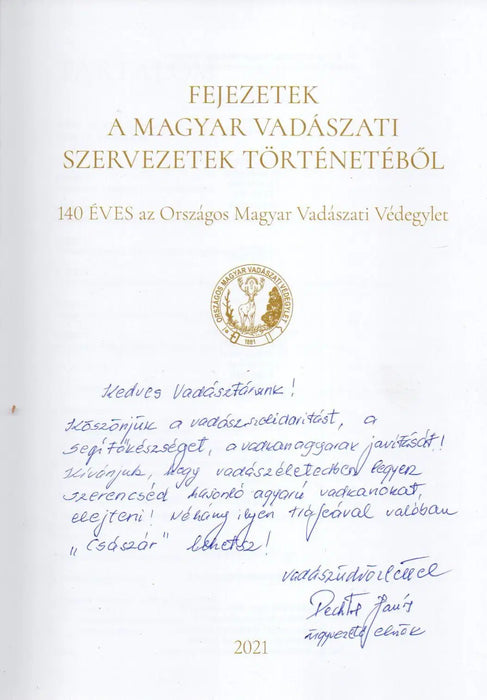 FEJEZETEK
A MAGYAR VADÁSZATI
SZERVEZETEK TÖRTÉNETÉBŐL
140 ÉVES az Országos Magyar Vadászati Védegylet
ORSZÁGOS MAGYAR VADÁSZATI VÉDEGYLET
1881
Kedves Vadásztársunk!
Köszönjük a vadászszolidaritást, a
segítőkészséget, a vadkanagyarak javítását!
Kívánjuk, hogy vadászéletedben legyen
szerencséd hasonló agyarú vadkanokat,
elejteni! Néhány ilyen trófeával valóban
„Császár" lehetsz!
vadászüdvözlettel
János
ügyvezető elnök
2021